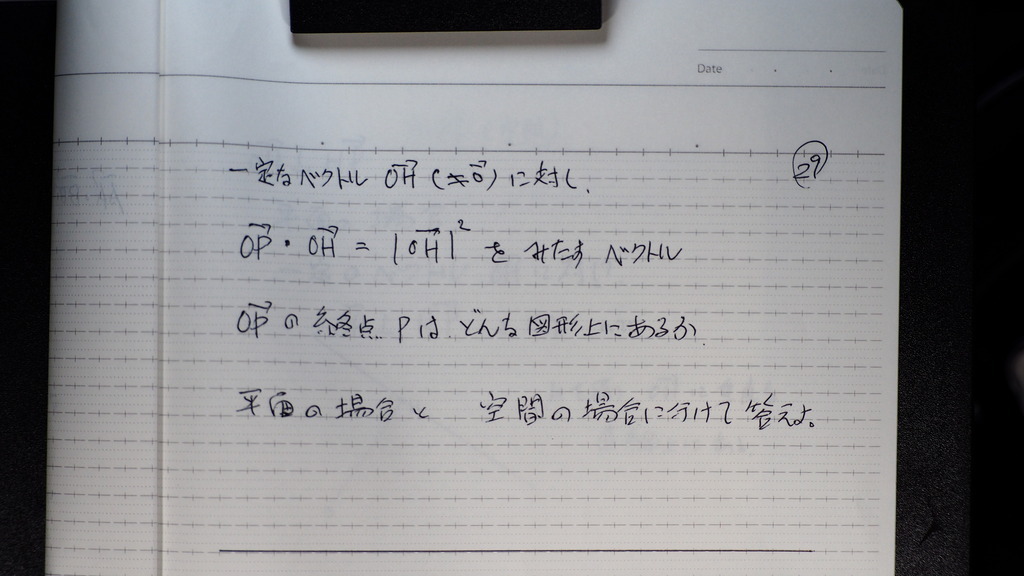 Date
㉙
一定なベクトル OH→ (≠0→) に対し、
OP→・OH→ = |OH→|² をみたす ベクトル
OP→ の終点 P は どんな図形上にあるか.
平面の場合と 空間の場合に分けて答えよ。